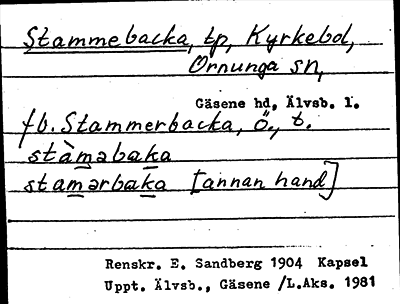 Stammebacka, tp, Kyrkebol,
Ornunga sn,
Gäsene hd, Älvsb. l.
fb. Stammerbacka, Ö., t.
stàmabaka
stamərbaka [annan hand]
Renskr. E. Sandberg 1904 Kapsel
Uppt. Älvsb., Gäsene /L.Aks. 1981